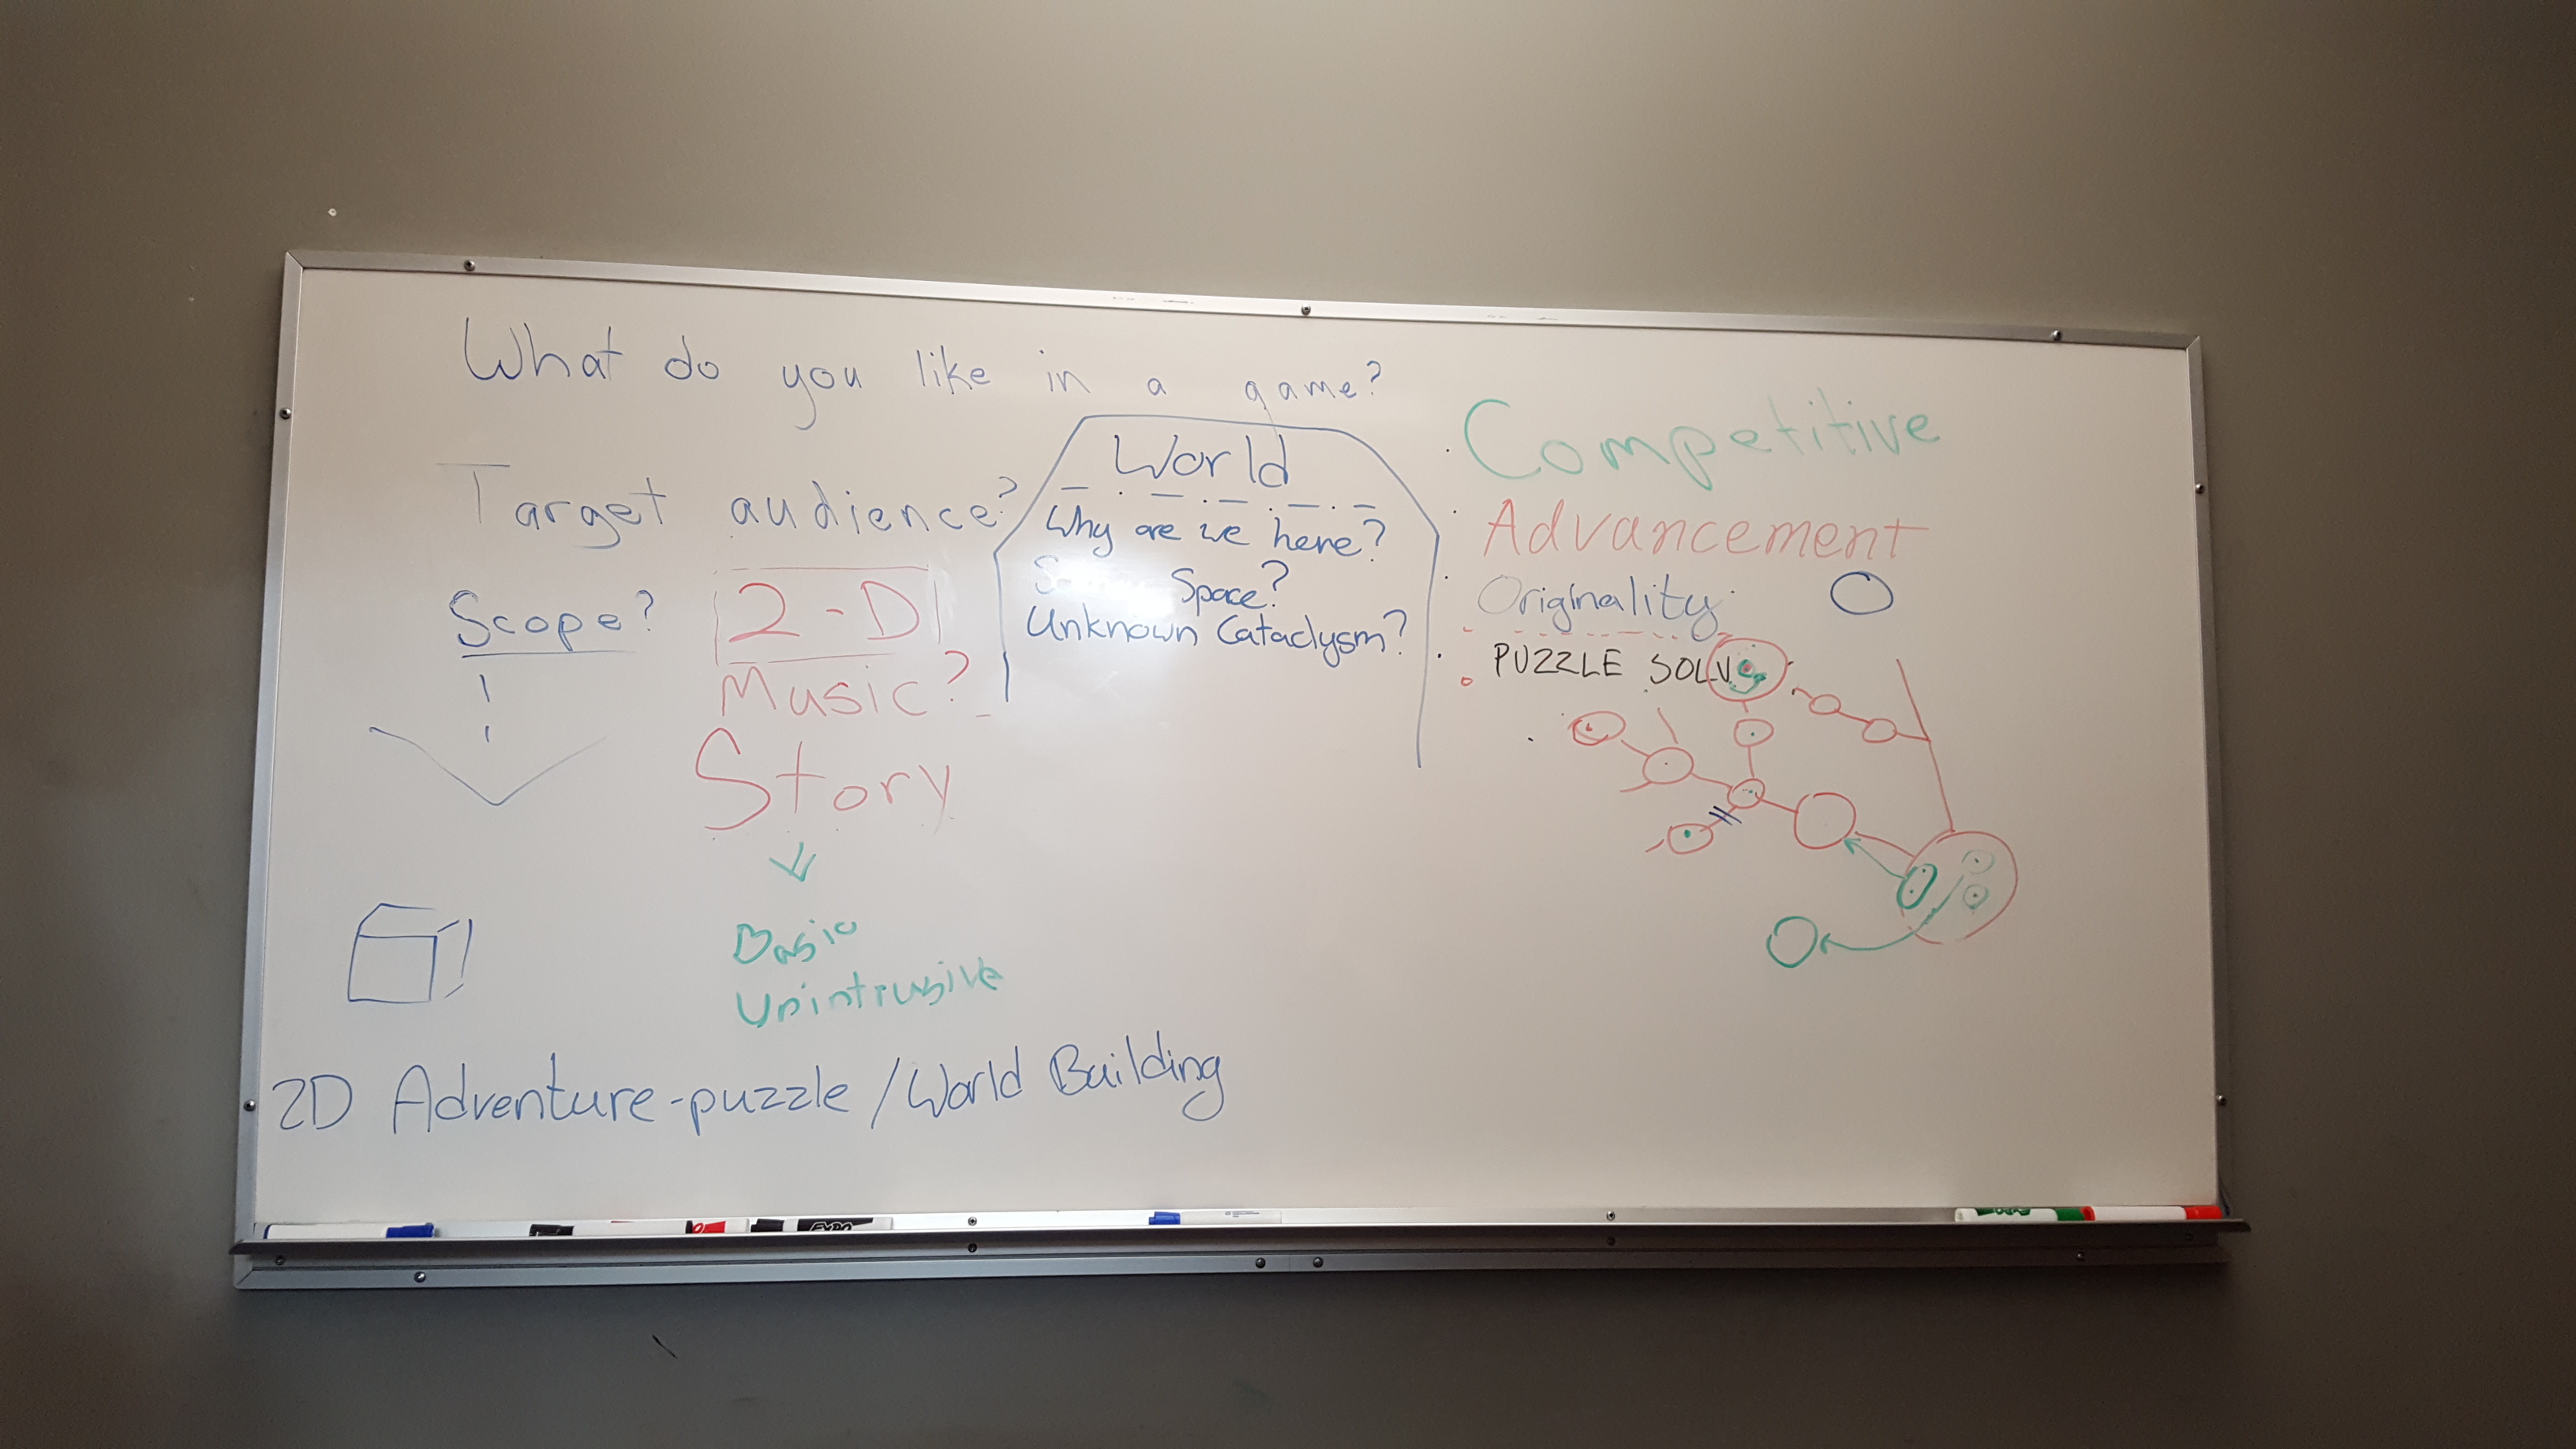 What do you like in a game?
Target audience?
Scope?
2-D
Music?
Story
Basic
Unintrusive
World
Why are we here?
Space?
Unknown Cataclysm?
Competitive
Advancement
Originality
PUZZLE SOLV
2D Adventure-puzzle/World Building
EXPO